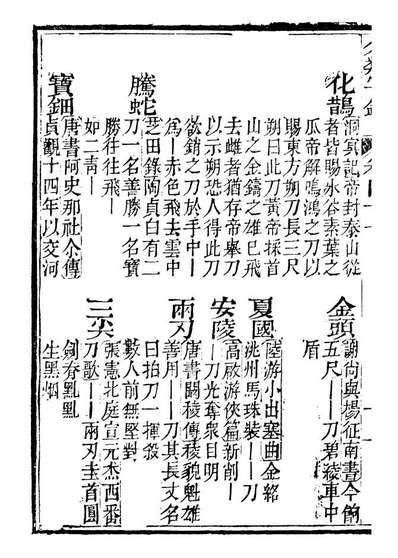 化鵲
洞冥記帝封泰山從
者皆賜氷谷素葉之
瓜帝解鳴鴻之刀以
賜東方朔刀長三尺
朔曰此刀黃帝採首
山之金鑄之雄已飛
去雌者猶存帝舉刀
以示朔恐人得此刀
欲銷之刀於手中丨
爲丨赤色飛去雲中
騰蛇
芝田錄陶貞白有二
刀一名善勝一名寶
勝往往飛丨
如二靑丨丨
寶鈿
唐書阿史那社尒傳
貞觀十四年以交河
金頭
謝尚與楊征南書今餉
五尺丨丨刀碧綾車中
盾
夏國
陸游小出塞曲金絡
洮州馬珠裝丨丨刀
安陵
高啟游俠篇新削丨
丨刀光奪衆目明
兩刃
唐書闞稜傳稜貌魁雄
善用丨丨刀其長丈名
曰拍刀一揮殺
數人前無堅對
三尖
張憲北庭宣元杰西番
刀歌丨丨兩刃圭首圓
劍脊亂亂
生黑烟